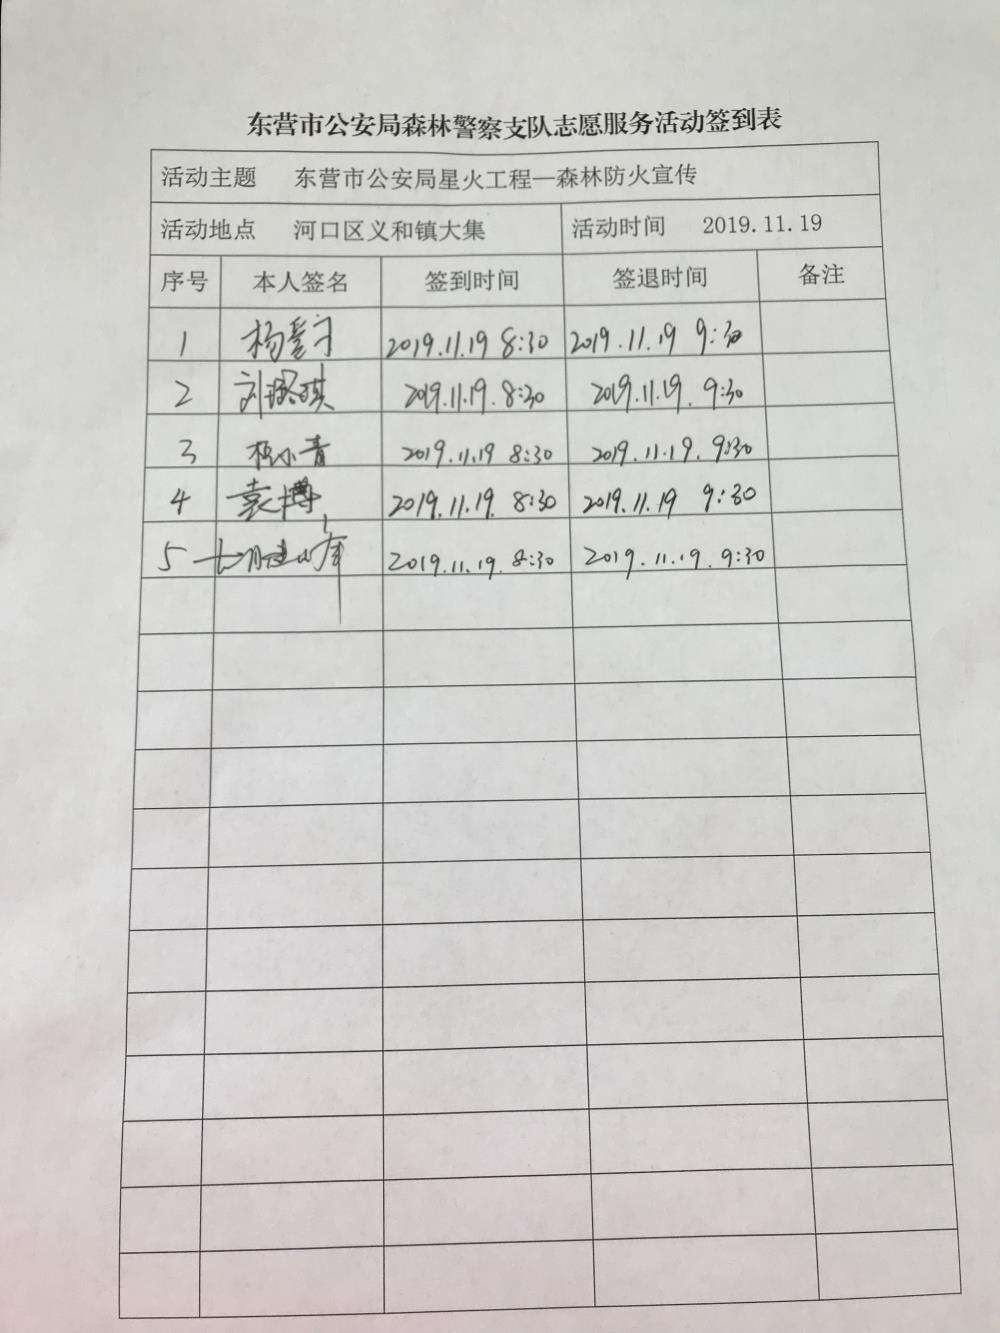 东营市公安局森林警察支队志愿服务活动签到表
活动主题 东营市公安局星火工程—森林防火宣传
活动地点 河口区义和镇大集 活动时间 2019.11.19
序号 本人签名 签到时间 签退时间 备注
1 2019.11.19 8:30 2019.11.19 9:30
2 2019.11.19.8:30 2019.11.19.9:30
3 杨小青 2019.11.19 8:30 2019.11.19.9:30
4 袁博 2019.11.19.8:30 2019.11.19 9:30
5 2019.11.19.8:30 2019.11.19.9:30